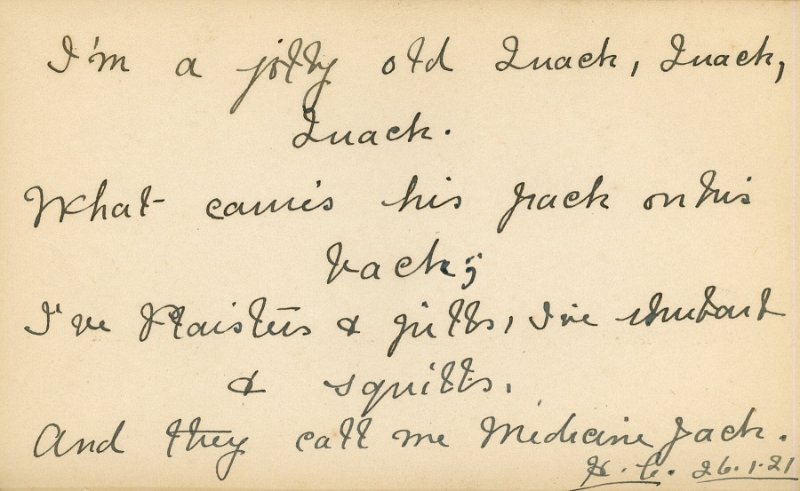 I'm a jolly old Quack, Quack,
Quack.
What carries his pack on his
back;
I've Plaisters & pills, I've rhubarb
& squills.
And they call me Medicine Jack.
H. C. 26.1.21